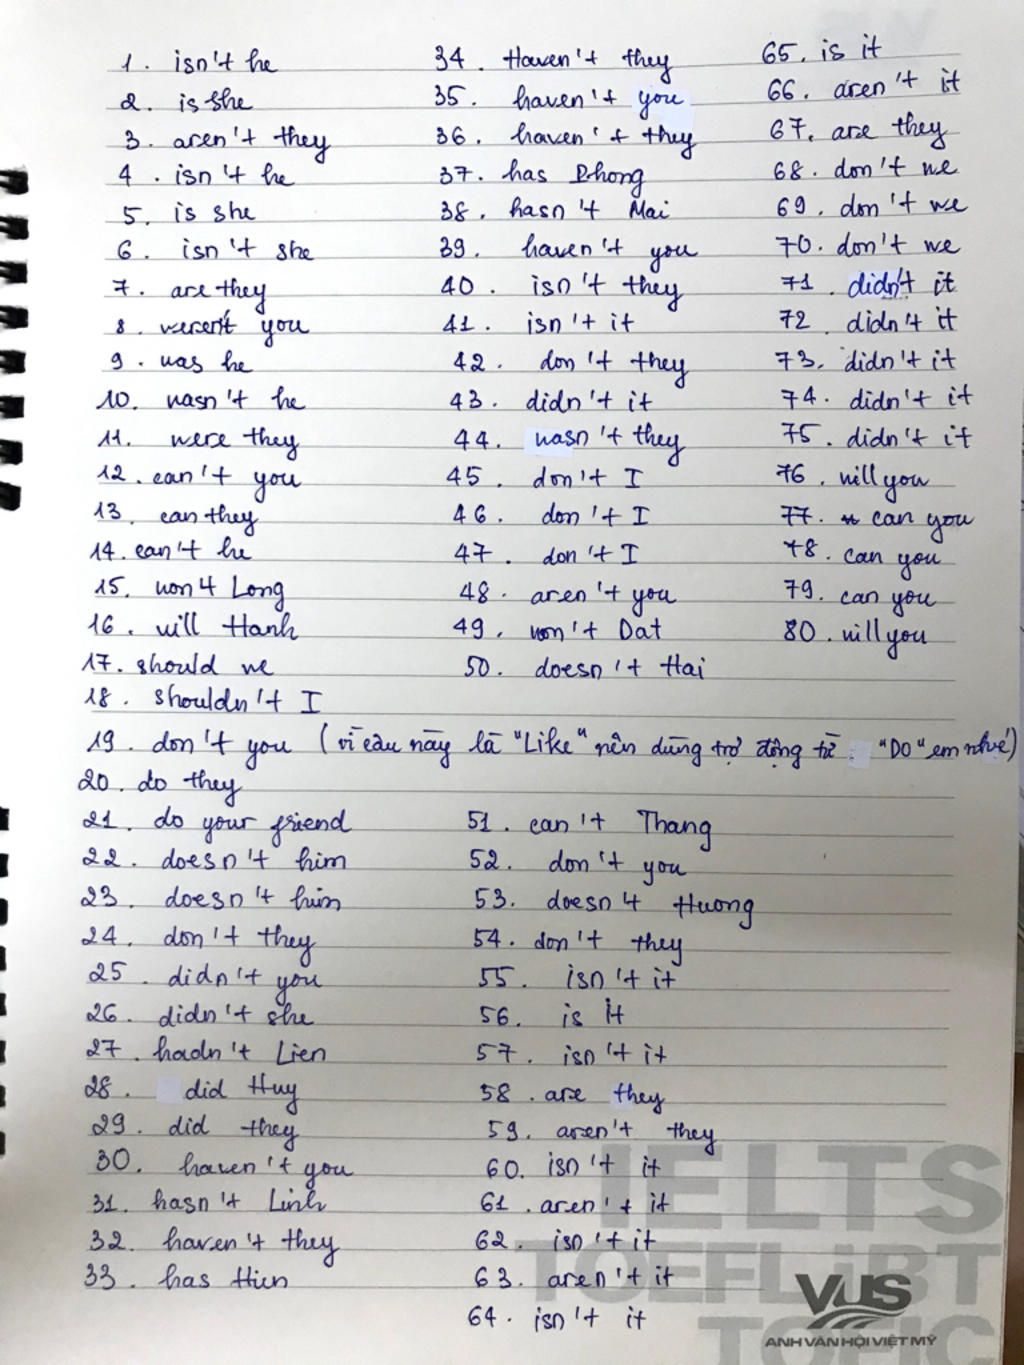 1. isn't he
2. is she
3. aren't they
4. isn't he
5. is she
6. isn't she
7. are they
8. weren't you
9. was he
10. wasn't he
11. were they
12. can't you
13. can they
14. can't he
15. won't Long
16. will Hanh
17. should we
18. shouldn't I
34. Haven't they
35. haven't you
36. haven't they
37. has Phong
38. hasn't Mai
39. haven't you
40. isn't they
41. isn't it
42. don't they
43. didn't it
44. wasn't they
45. don't I
46. don't I
47. don't I
48. aren't you
49. won't Dat
50. doesn't Hai
65. is it
66. aren't it
67. are they
68. don't we
69. don't we
70. don't we
71. didn't it
72. didn't it
73. didn't it
74. didn't it
75. didn't it
76. will you
77. can you
78. can you
79. can you
80. will you
19. don't you (vì câu này là "Like" nên dùng trợ động từ "DO" em nhé)
20. do they
21. do your friend
22. doesn't him
23. doesn't him
24. don't they
25. didn't you
26. didn't she
27. hadn't Lien
28. did Huy
29. did they
30. haven't you
31. hasn't Linh
32. haven't they
33. has Hien
51. can't Thang
52. don't you
53. doesn't Huong
54. don't they
55. isn't it
56. is it
57. isn't it
58. are they
59. aren't they
60. isn't it
61. aren't it
62. isn't it
63. aren't it
64. isn't it
IELTS
TOEFL iBT
TOEIC
VUS
ANH VĂN HỘI VIỆT MỸ